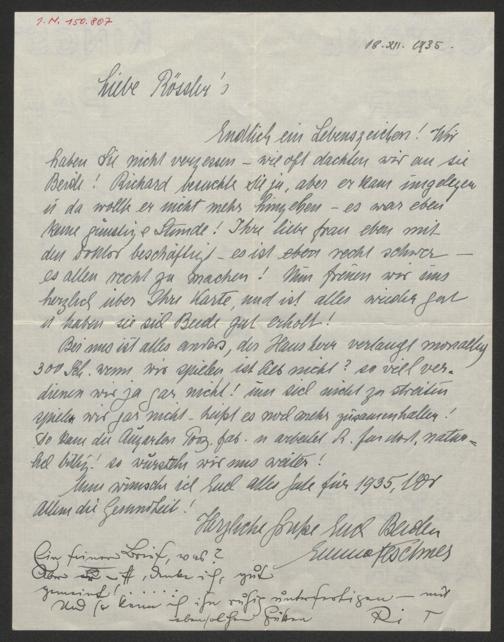 J.N. 150.807
18.XII. 1935.
Liebe Rössler's
Endlich ein Lebenszeichen! Wir
haben Sie nicht vergessen – wie oft dachten wir an sie
Beide! Richard besuchte Sie ja, aber er kam ungelegen
u da wollte er nicht mehr hingehen – es war eben
keine günstige Stunde! Ihre liebe Frau eben mit
den Doktor beschäftigt – es ist eben recht schwer –
es allen recht zu machen! Nun freuen wir uns
herzlich über Ihre Karte, und ist alles wieder gut
u haben sie sich Beide gut erholt!
Bei uns ist alles anders, der Hausherr verlangt monatlich
300 wenn wir spielen ist das nicht? so viel ver-
dienen wir ja gar nicht! um sich nicht zu streiten
spielen wir gar nicht – heißt es noch mehr zusammenhalten!
So kam die Augarten Porz. fab. u arbeitet R. für dort, natür-
lich billig! so wursteln wir uns weiter!
Nun wünsche ich Euch alles Gute für 1935, vor
Allem die Gesundheit!
Herzliche Grüße Euch Beiden
Emma Teschner
Ein feiner Brief, was?
Aber denke ich, gut
gemeint! . . . . . .
Und so kann ich ihn ruhig unterfertigen – mit
ebensolchen Grüßen Ri T